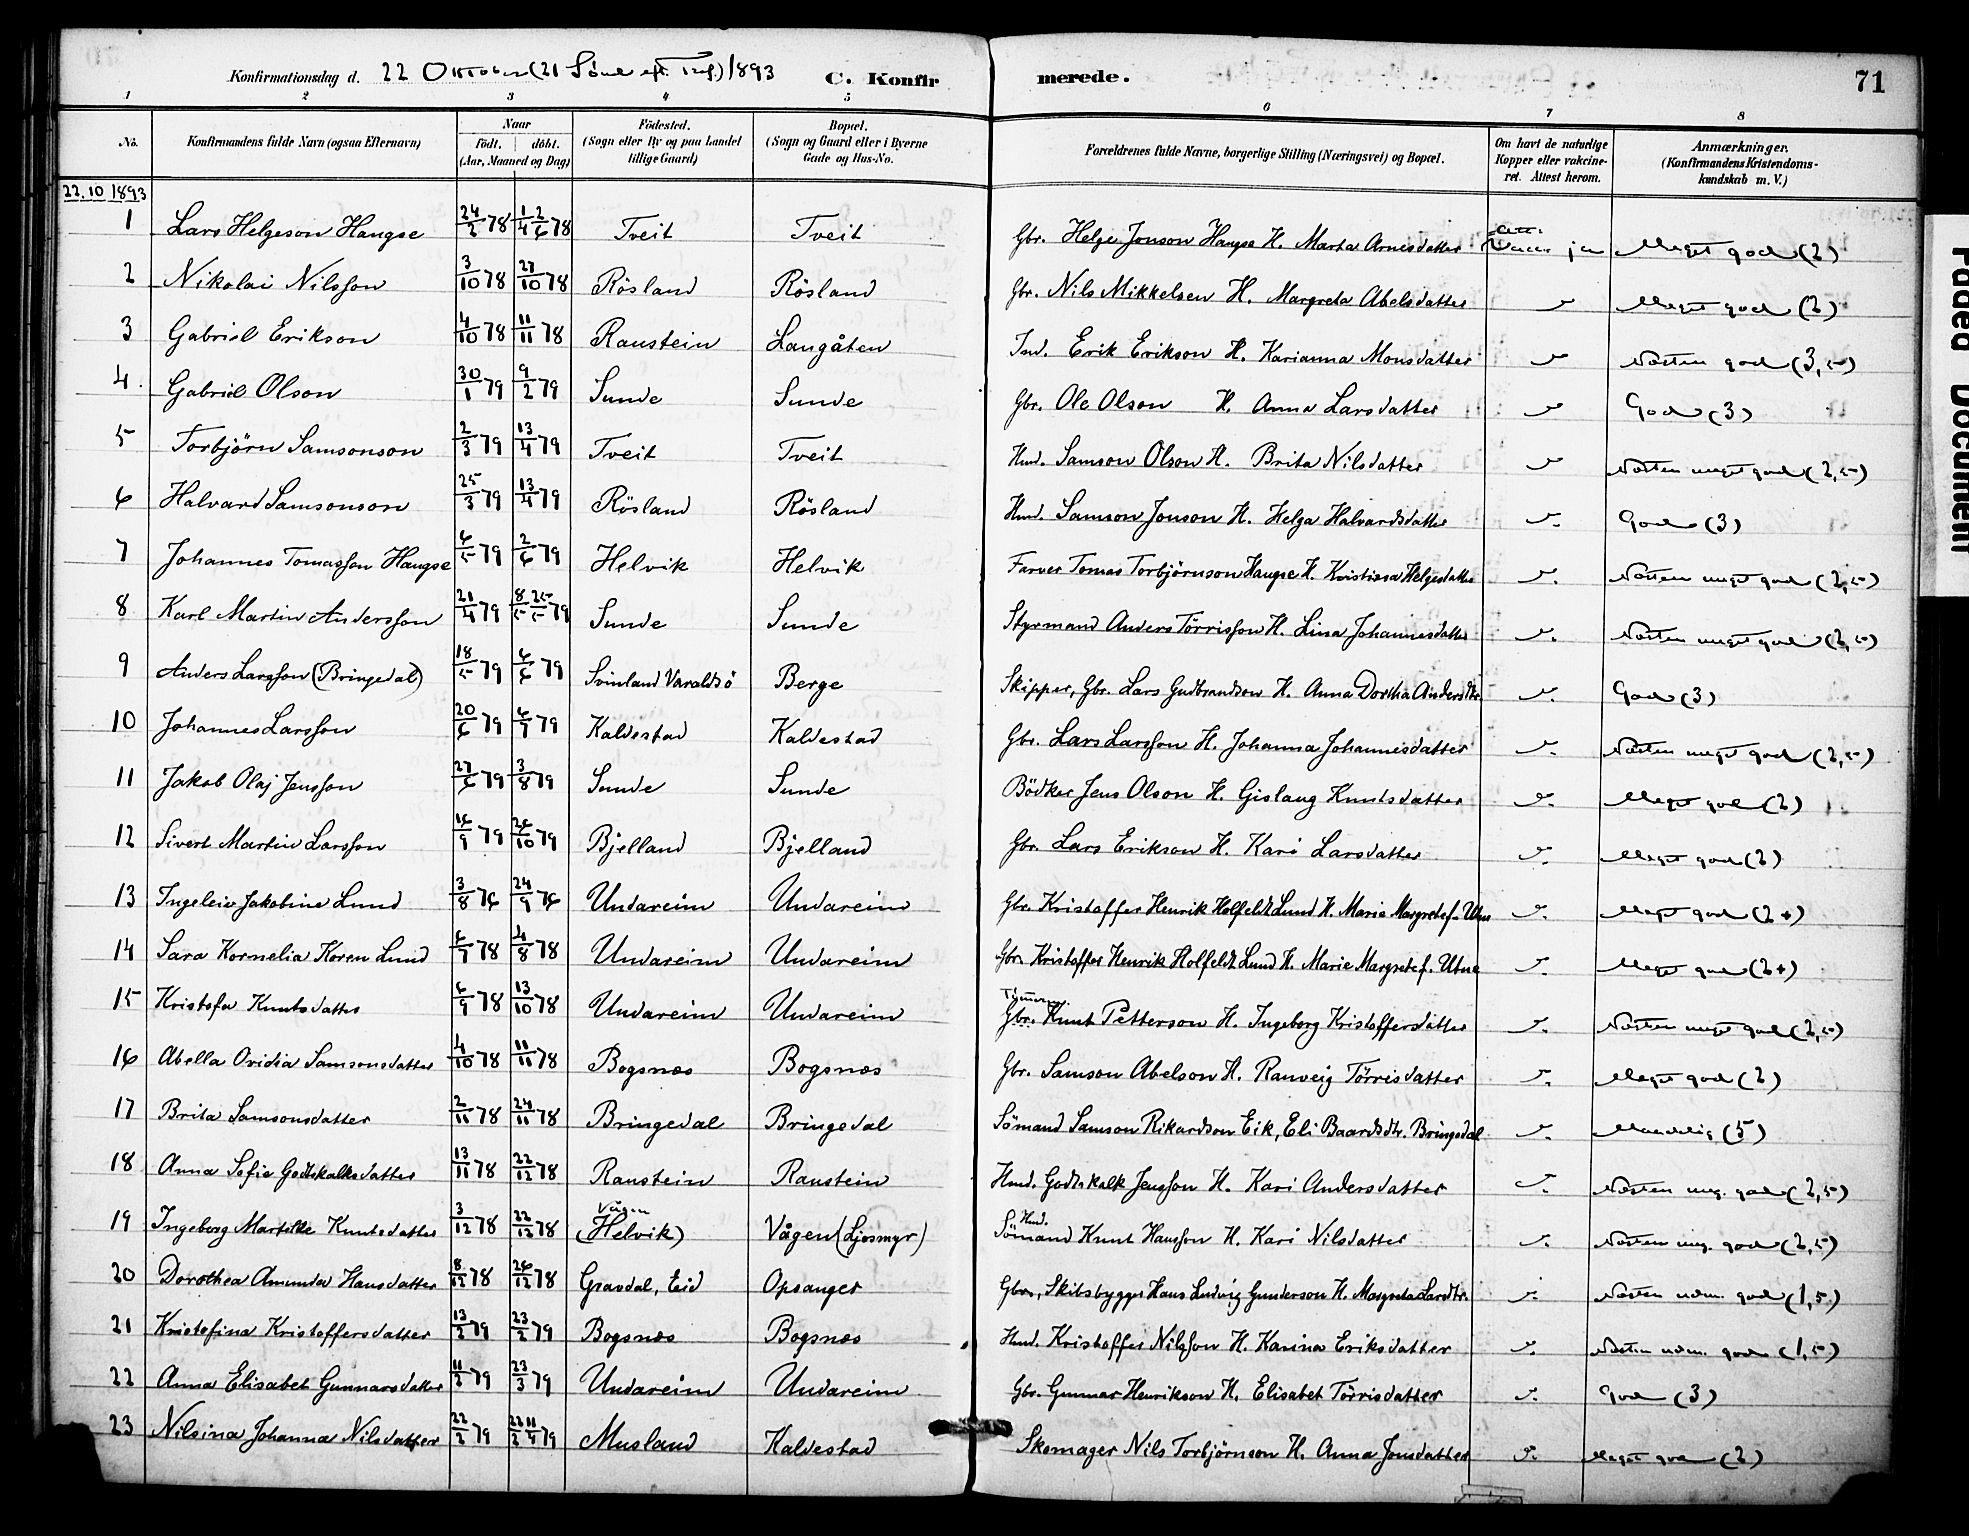 Konfirmationsdag d. 22 Oktober (21 Sönd. eft. Tref.) 1893 C. Konfirmerede. 71
1 2 3 4 5 6 7 8
No. Konfirmandens fulde Navn (ogsaa Efternavn) Naar födt. döbt. (Aar, Maaned og Dag) Födested. (Sogn eller By og paa Landet tillige Gaard) Bopæl. (Sogn og Gaard eller i Byerne Gade og Hus-No. Forældrenes fulde Navne, borgerlige Stilling (Næringsvei) og Bopæl. Om havt de naturlige Kopper eller vakcineret. Attest herom. Anmærkninger. (Konfirmandens Kristendomskundskab m. V.)
22.10 1893
1 Lars Helgeson Haugse 24/2 78 1/4 2/6 78 Tveit Tveit Gbr. Helge Jonson Haugse H. Marta Arnesdatter ja Meget god (2)
2 Nikolai Nilsson 3/10 78 27/10 78 Rösland Rösland Gbr. Nils Mikkelsen H. Margreta Abelsdatter Meget god (2)
3 Gabriel Erikson 4/10 78 11/11 78 Raustein Langåten Ind. Erik Erikson H. Karianna Monsdatter Næsten god (3,5)
4. Gabriel Olson 30/1 79 9/2 79 Sunde Sunde Gbr. Ole Olson H. Anna Larsdatter God (3)
5 Torbjörn Samsonson 2/3 79 13/4 79 Tveit Tveit Hmd. Samson Olson H. Brita Nilsdatter Næsten meget god (2,5)
6 Halvard Samsonson 25/3 79 13/4 79 Rösland Rösland Hmd. Samson Jonson H. Helga Halvardsdatter God (3)
7 Johannes Tomasson Haugse 6/5 79 2/6 79 Helvik Helvik Farver Tomas Torbjörnson Haugse H. Kristiana Helgesdatter Næsten meget god (2,5)
8 Karl Martin Andersson 21/4 79 8/5 25/5 79 Sunde Sunde Styrmand Anders Törrisson H. Lina Johannesdatter Næsten meget god (2,5)
9 Anders Larsson (Bringedal) 18/5 79 6/6 79 Svinland Varaldsö Berge Skipper, Gbr. Lars Gudbrandson H. Anna Dorthea Andersdtr. God (3)
10 Johannes Larsson 20/6 79 6/7 79 Kaldestad Kaldestad Gbr. Lars Larsson H. Johanna Johannesdatter Næsten meget god (2,5)
11 Jakob Olaj Jensson 27/6 79 3/8 79 Sunde Sunde Bödker Jens Olson H. Gislaug Knutsdatter Meget god (2)
12 Sivert Martin Larsson 16/9 79 26/10 79 Bjelland Bjelland Gbr. Lars Erikson H. Kari Larsdatter Meget god (2)
13 Ingeleiv Jakobine Lund 3/8 76 24/9 76 Undareim Undareim Gbr. Kristoffer Henrik Holfeldt Lund H. Marie Margrete f. Utne Meget god (2+)
14 Sara Kornelia Koren Lund 6/7 78 4/8 78 Undareim Undareim Gbr. Kristoffer Henrik Holfeldt Lund H. Marie Margrete f. Utne Meget god (2+)
15 Kristofa Knutsdatter 6/9 78 13/10 78 Undareim Undareim Gbr. Knut Petterson H. Ingeborg Kristoffersdatter Næsten meget god (2,5)
16 Abella Ovidia Samsonsdatter 4/10 78 11/11 78 Bogsnæs Bogsnæs Gbr. Samson Abelson H. Ranveig Törrisdatter Meget god (2)
17 Brita Samsonsdatter 2/11 78 24/11 78 Bringedal Bringedal Sömand Samson Rikardson Eik, Eli Baardsdtr. Bringedal Maadelig (5)
18 Anna Sofie Godtskalksdatter 13/11 78 22/12 78 Raustein Raustein Hmd. Godtskalk Jensson H. Kari Andersdatter Næsten meg. god (2,5)
19 Ingeborg Martille Knutsdatter 3/12 78 22/12 78 Vågen (Helvik) Vågen (Ljosmyr) Hmd. Sömand Knut Hansson H. Kari Nilsdatter Næsten meg. god (2,5)
20 Dorothea Amunda Hansdatter 8/12 78 26/12 78 Gravdal, Eid Opsanger Gbr., Skibsbygger Hans Ludvig Gunderson H. Margreta Larsdtr. Næsten udm. god (1,5)
21 Kristofina Kristoffersdatter 13/2 79 23/2 79 Bogsnæs Bogsnæs Hmd. Kristoffer Nilsson H. Karina Eriksdatter Næsten udm. god (1,5)
22 Anna Elisabet Gunnarsdatter 11/2 79 23/3 79 Undareim Undareim Gbr. Gunnar Henrikson H. Elisabet Törrisdatter God (3)
23 Nilsina Johanna Nilsdatter 22/2 79 22/2 11/4 79 Musland Kaldestad Skomager Nils Torbjörnson H. Anna Jonsdatter Meget god (2)
Faded Document